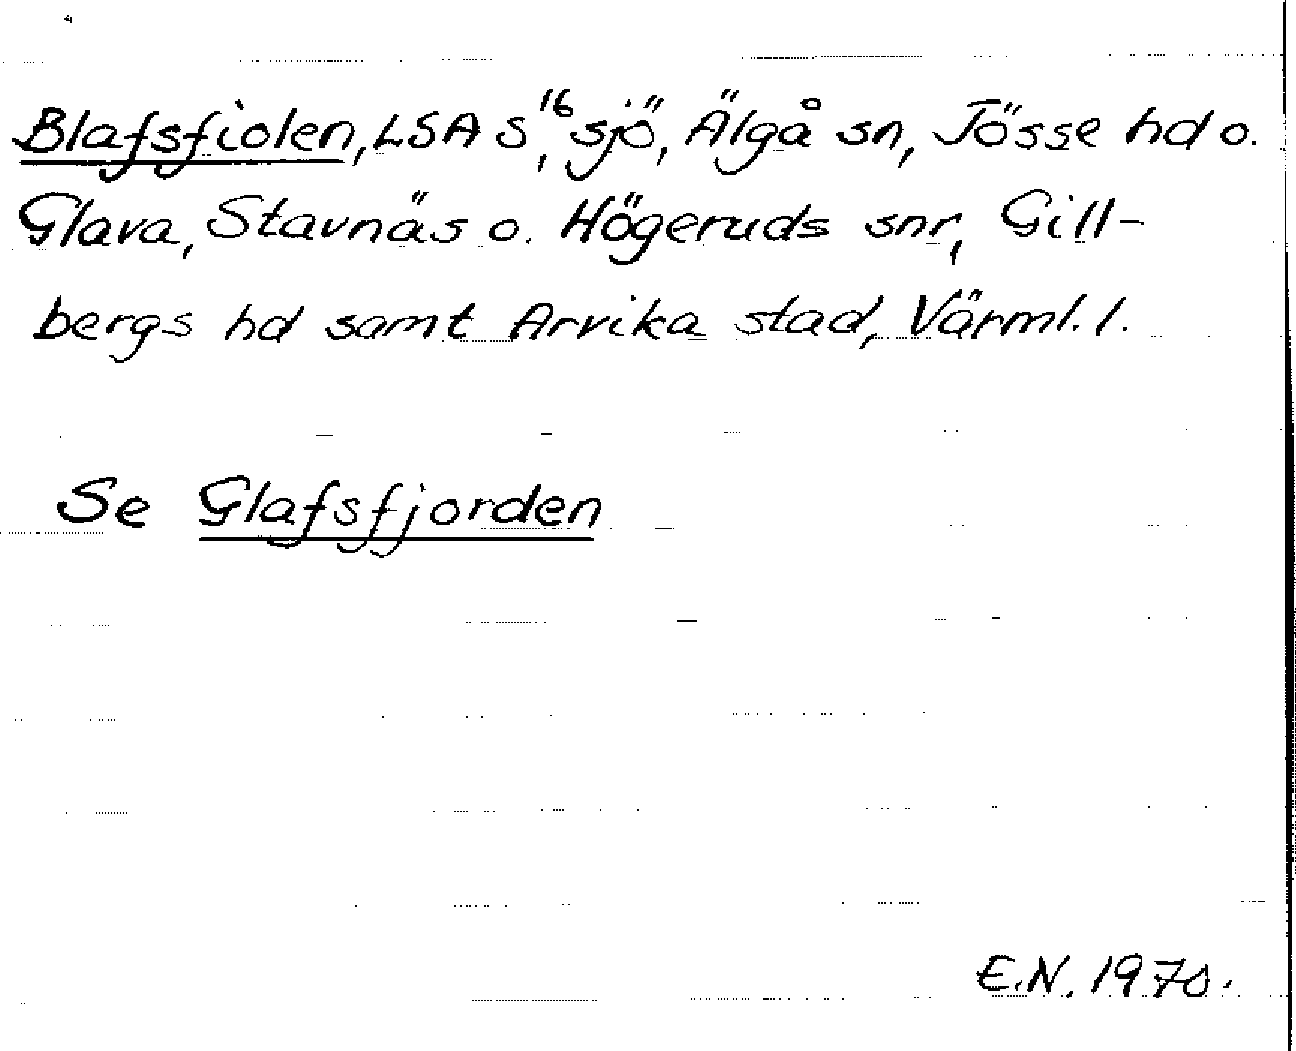 Blafsfiolen, LSA S¹⁶, sjö, Älgå sn, Jösse hd o.
Glava, Stavnäs o. Högeruds snr, Gill-
bergs hd samt Arvika stad, Värml. l.
Se Glafsfjorden
E.N. 1970.